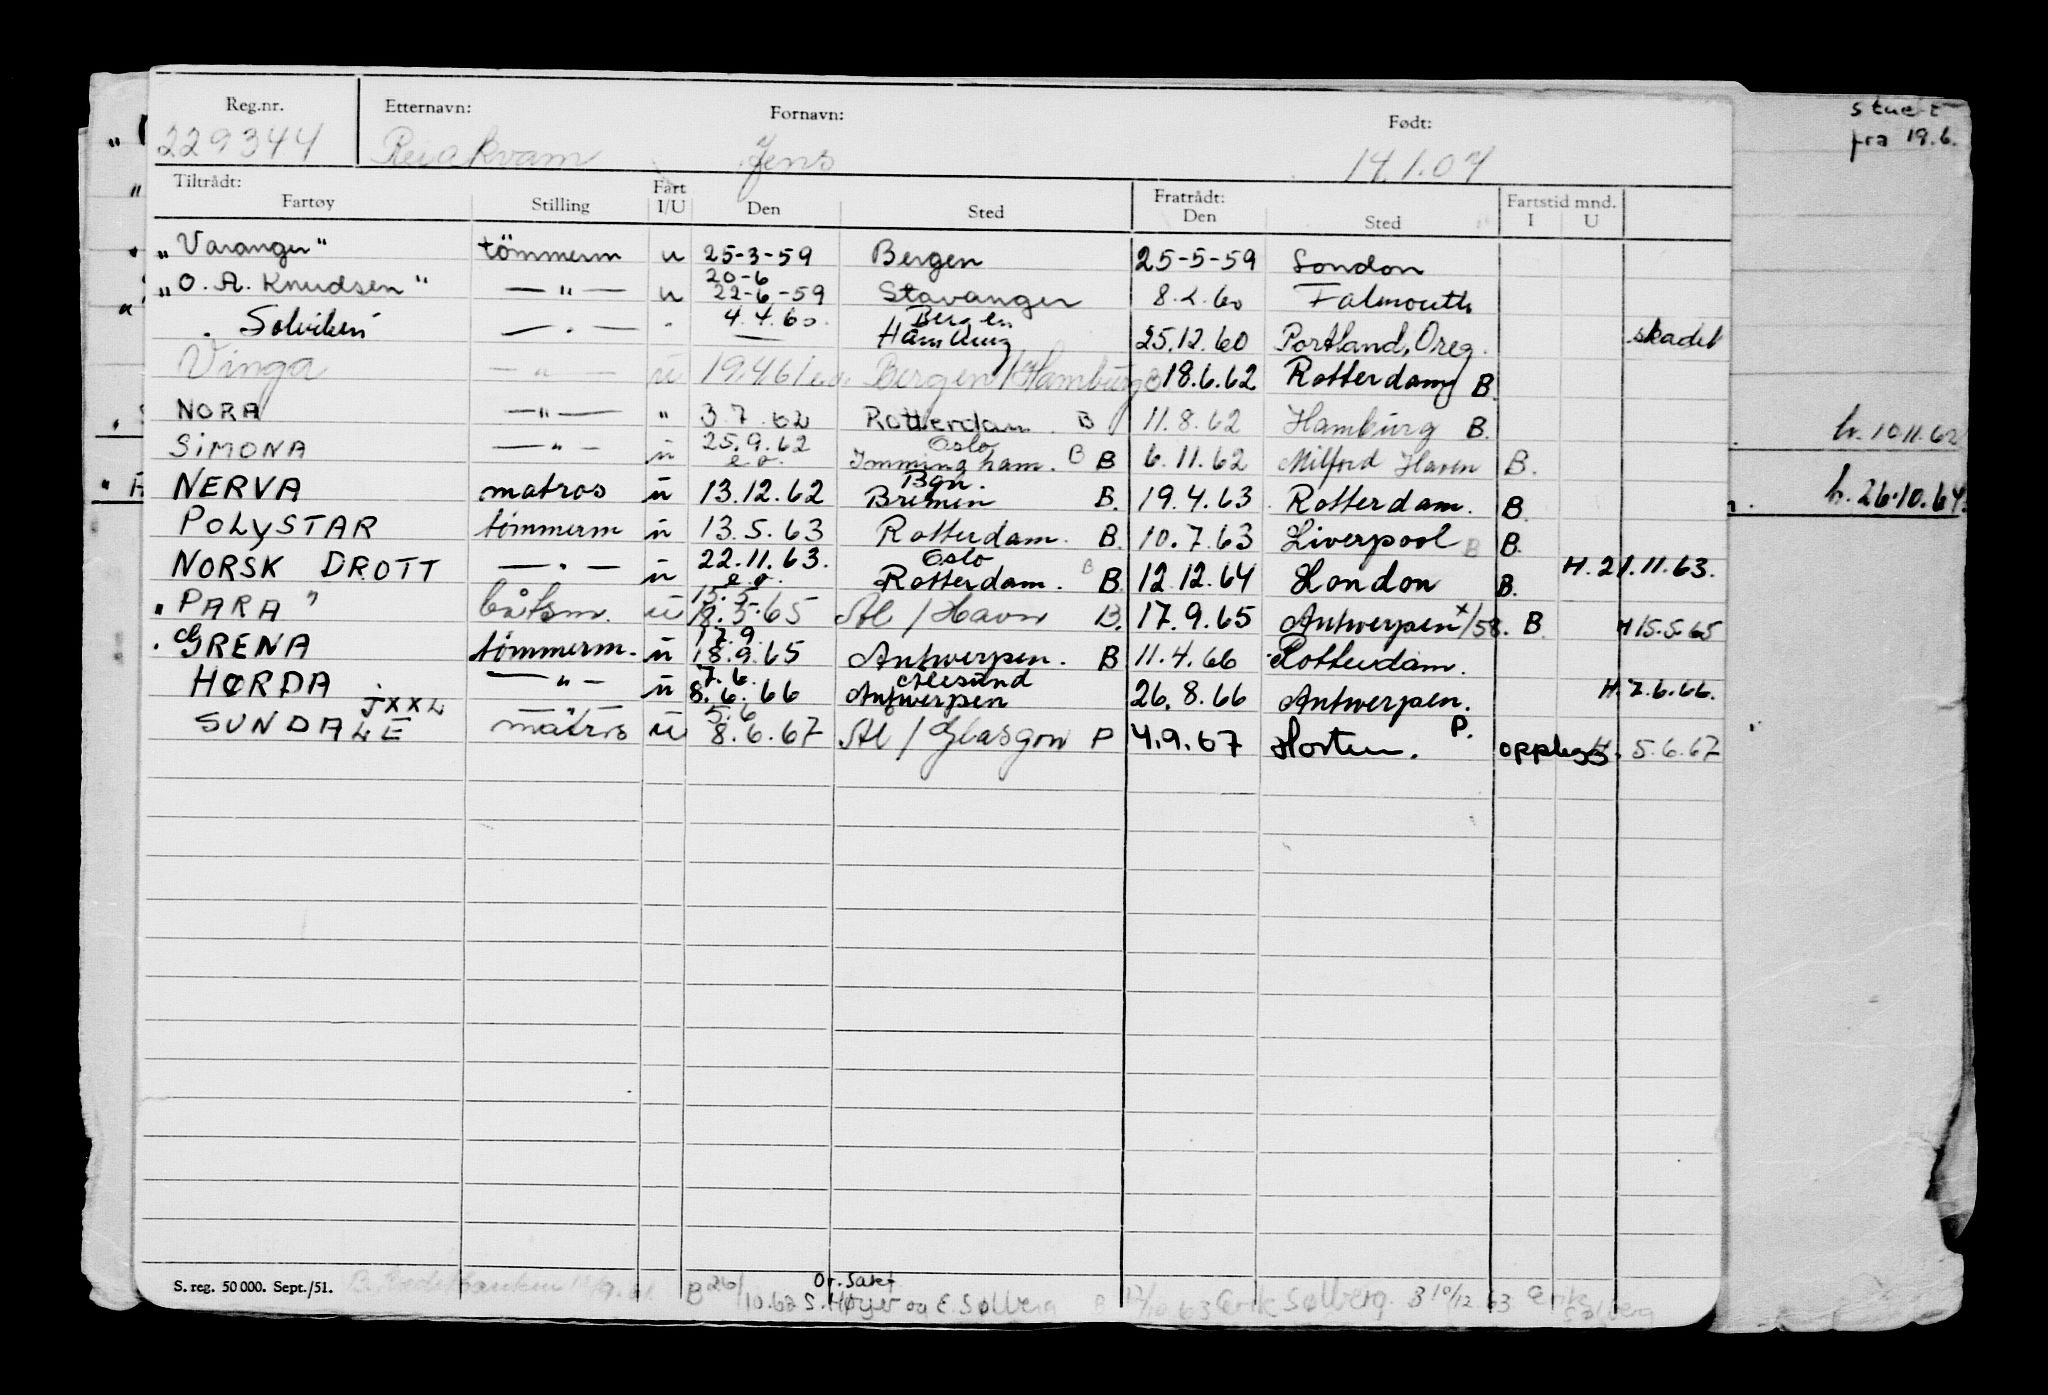 Reg.nr. Etternavn: Fornavn: Født:
229344 Revakvam Jens 14.1.07
Tiltrådt: Fart Fratrådt: Fartstid mnd.
Fartøy Stilling I/U Den Sted Den Sted I U
"Varanger" tömmerm u 25-3-59 Bergen 25-5-59 London
20-6
"O. A. Knudsen" — " — u 22-6-59 Stavanger 8.2.60 Falmouth
4.4.60. Bergen
Solviken — " — " — Hamburg 25.12.60 Portland, Oreg. skadet
Vinga — " — u 19.4.61 e.o. Bergen/Hamburg B 18.6.62 Rotterdam B.
NORA — " — " 3.7.62 Rotterdam B 11.8.62 Hamburg B.
25.9.62 Oslo
SIMONA — " — u e.o. Immingham. B B 6.11.62 Milford Haven B.
Bgn.
NERVA matros u 13.12.62 Bremen B. 19.4.63 Rotterdam. B.
POLYSTAR tömmerm u 13.5.63 Rotterdam. B. 10.7.63 Liverpool B B.
22.11.63. Oslo H. 21.11.63.
NORSK DROTT — " — u e.o. Rotterdam. B B. 12.12.64 London B.
15.5.
"PARA" båtsm. u 18.5.65 Ål/Havn B. 17.9.65 Antwerpen x/58. B H 15.5.65
17.9.
"GRENA tømmerm. u 18.9.65 Antwerpen. B 11.4.66 Rotterdam.
7.6. Ålesund
HØRDA — " — u 8.6.66 Antwerpen 26.8.66 Antwerpen. H. 7.6.66.
JXXL — " — 5.6
SUNDALE matros u 8.6.67 Ål/Glasgow P 4.9.67 Horten. P. opplegg. H. 5.6.67
S. reg. 50 000. Sept./51. B 26/10.62 S. Høyer og E. Sølberg B 12/10 63 Erik Sølberg. B 10/12.63 Erik Sølberg
fra 19.6.
h. 10.11.62
h. 26.10.64.